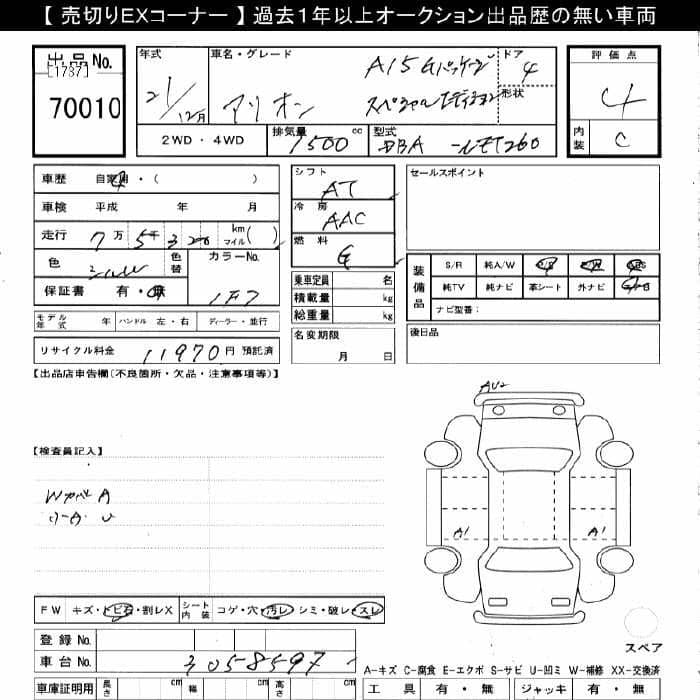 【 売切りEXコーナー 】 過去1年以上オークション出品歴の無い車両
出品No.
[1787]
70010
年式
21/12月
車名・グレード
A15 Gパッケージ
アリオン
スペシャルエディション
ドア
4
形状
評価点
4
内装
C
2WD・4WD
排気量
1500 cc
型式
DBA
車歴 自家用・( )
車検 平成 年 月
走行 7万5千320 km マイル( )
色
シルバー
色替
カラーNo.
1F7
保証書 有・無
モデル年式 年 ハンドル 左・右 ディーラー・並行
リサイクル料金 11970円 預託済
シフト
AT
冷房
AAC
燃料
G
乗車定員 名
積載量 kg
総重量 kg
名変期限
月 日
セールスポイント
装備品
S/R 純A/W P/S P/W ABS
純TV 純ナビ 革シート 外ナビ
ナビ型番:
後日品
【出品店車告欄(不良箇所・欠品・注意事項等)】
【検査員記入】
Wカバー A
U
AU2
A1
A1
スペア
FW キズ・トビ石・割レX
シート内装 コゲ・穴・汚レ・シミ・破レ・スレ
登録 No.
車台 No. 3058597
車庫証明用 長さ cm 幅 cm 高さ cm
A-キズ C-腐食 E-エクボ S-サビ U-凹ミ W-補修 XX-交換済
工具 有・無 ジャッキ 有・無